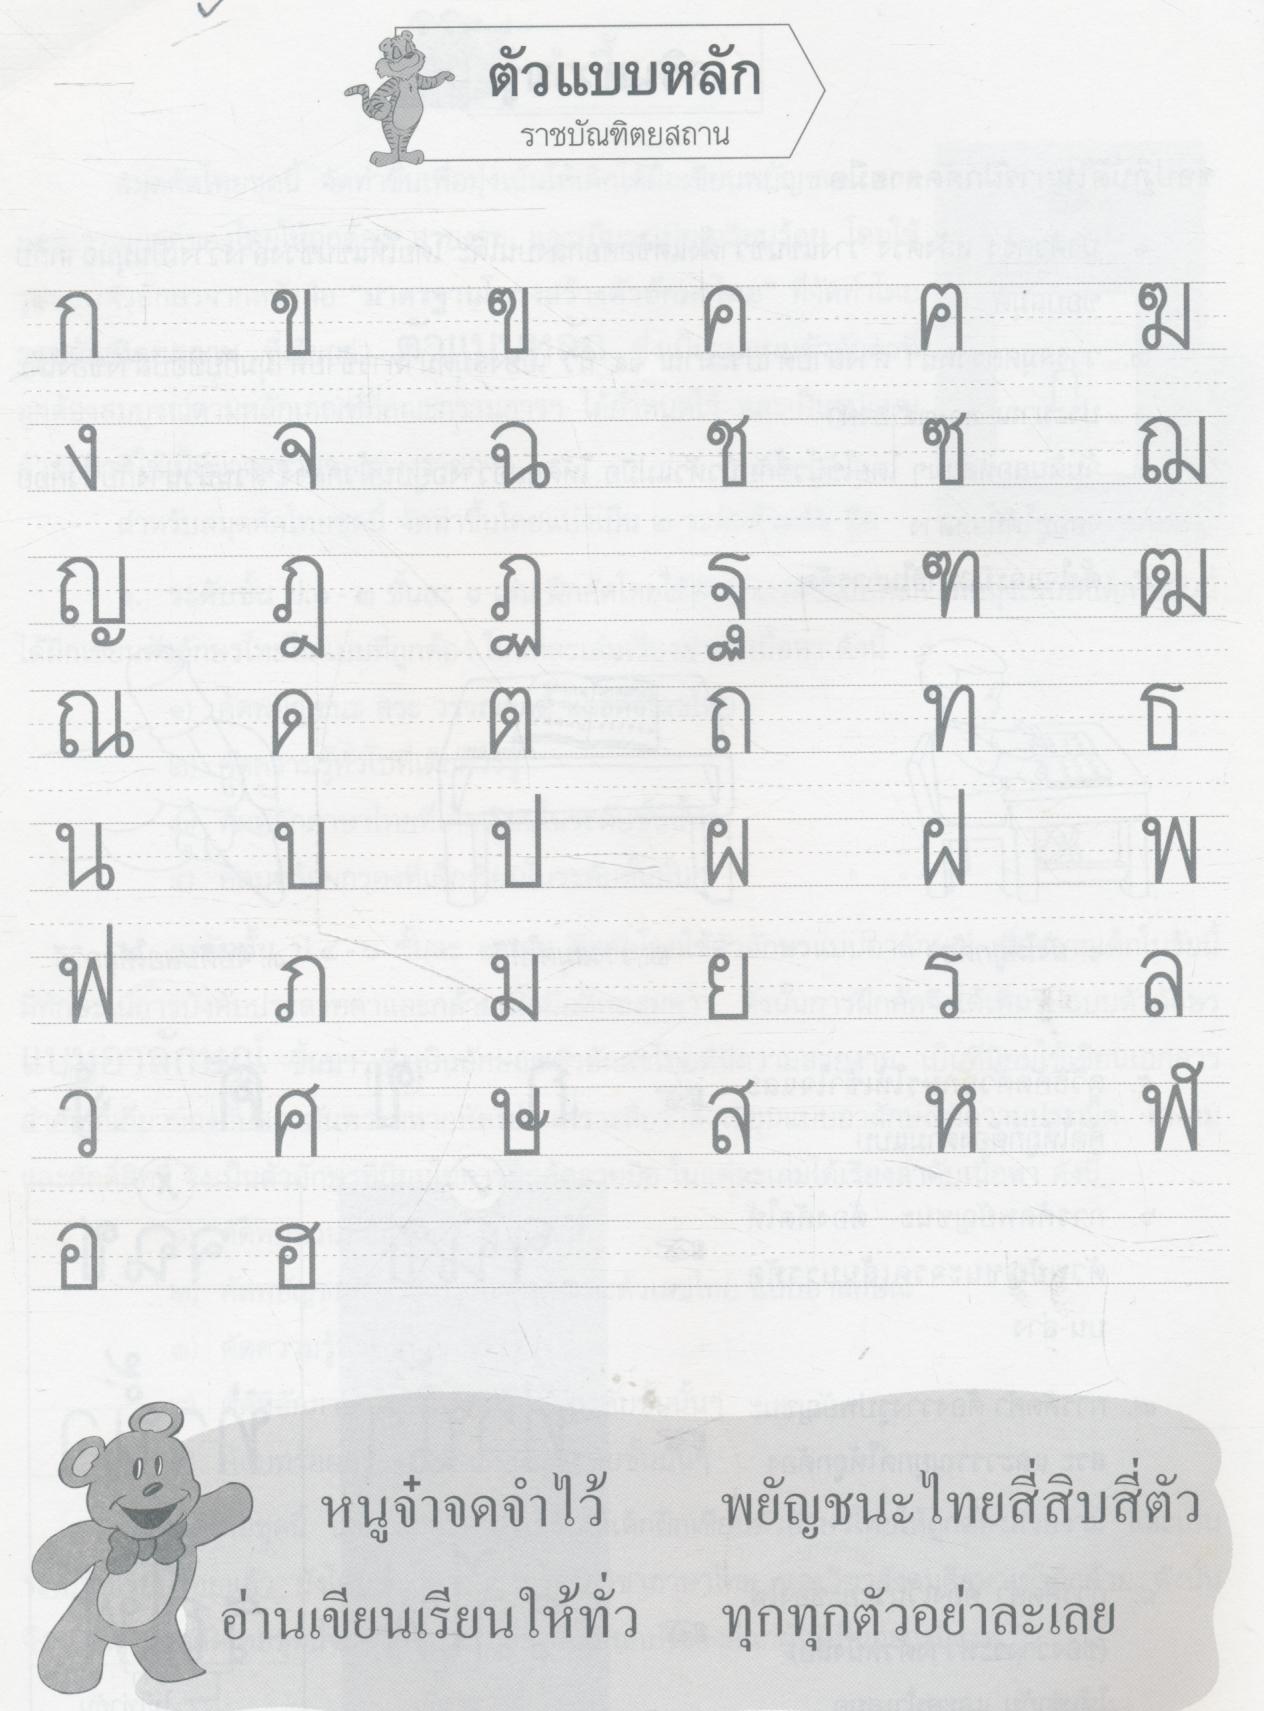 ตัวแบบหลัก
ราชบัณฑิตยสถาน
ก ข ฃ ค ฅ ฆ
ง จ ฉ ช ซ ฌ
ญ ฎ ฏ ฐ ฑ ฒ
ณ ด ต ถ ท ธ
น บ ป ผ ฝ พ
ฟ ภ ม ย ร ล
ว ศ ษ ส ห ฬ
อ ฮ
หนูจ๋าจดจำไว้ พยัญชนะไทยสี่สิบสี่ตัว
อ่านเขียนเรียนให้ทั่ว ทุกทุกตัวอย่าละเลย